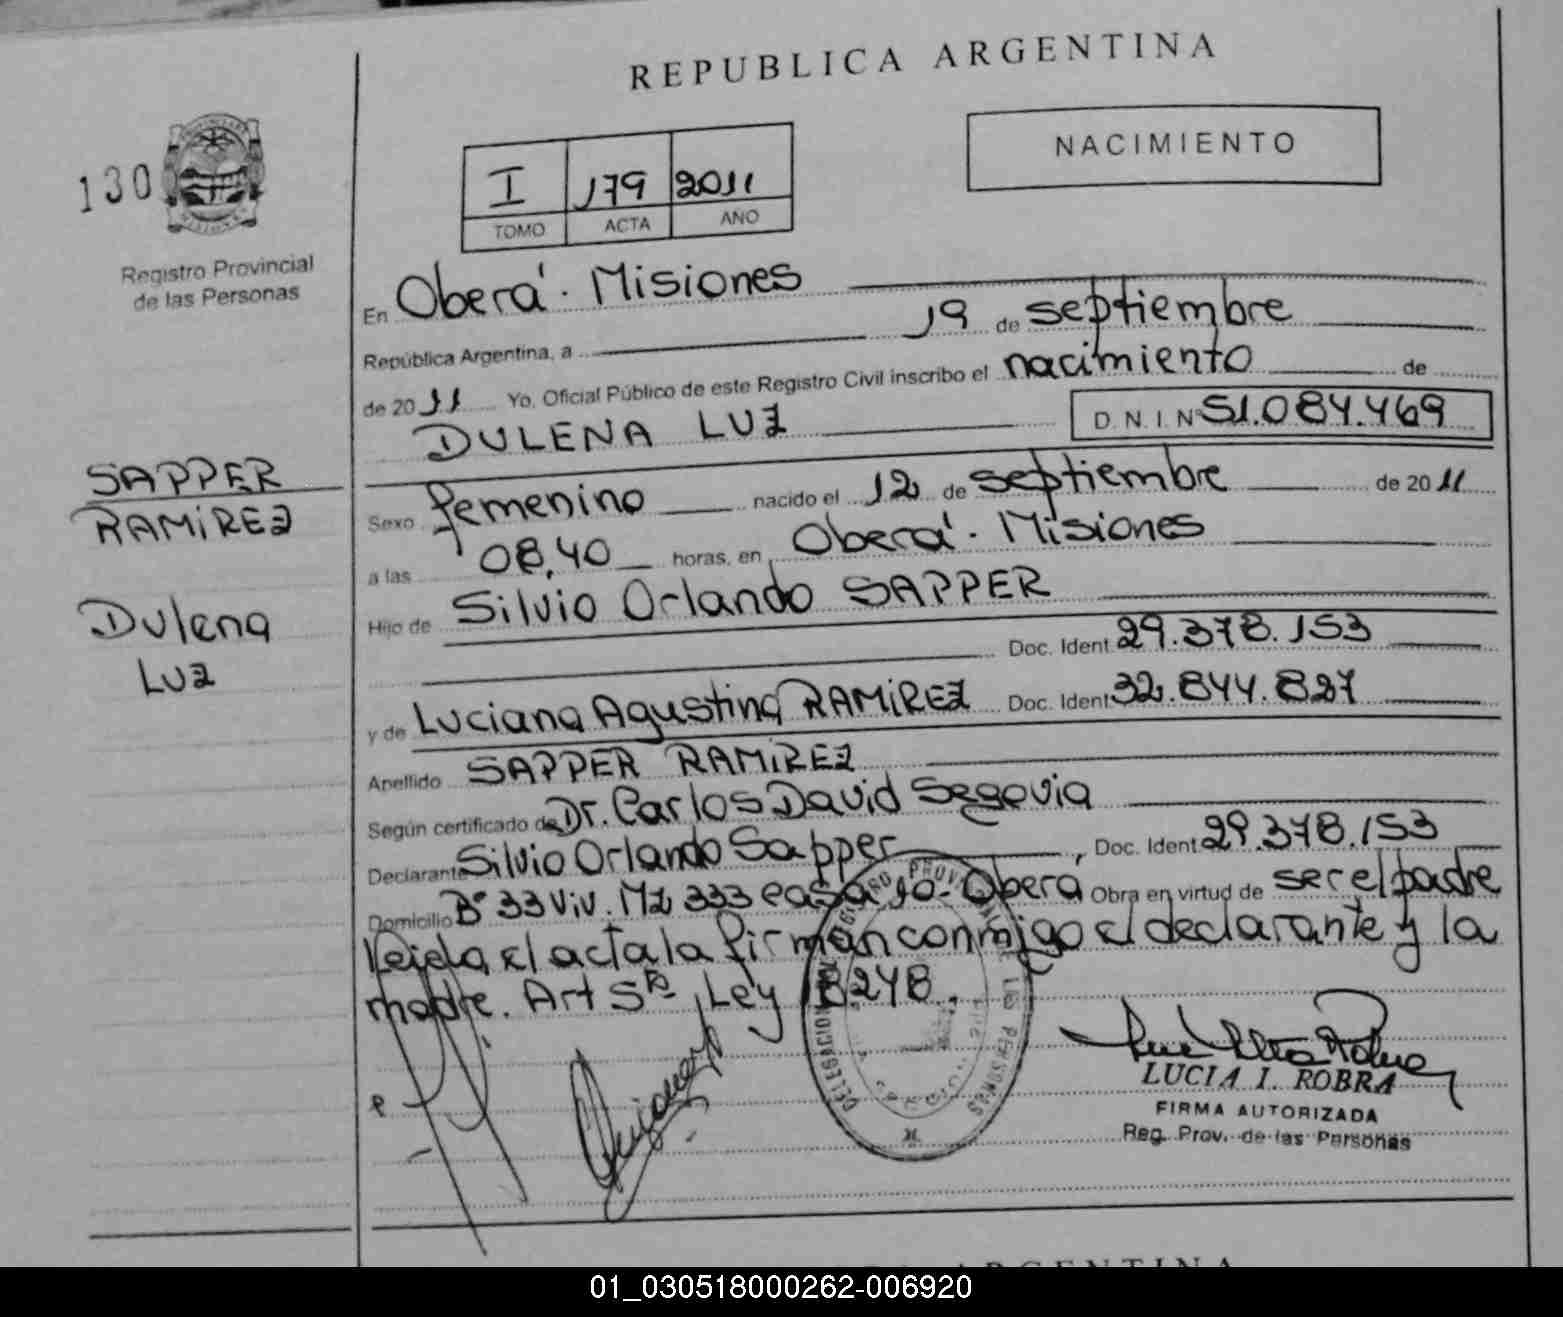 REPUBLICA ARGENTINA
130
Registro Provincial
de las Personas
NACIMIENTO
I 179 2011
TOMO ACTA AÑO
En Oberá. Misiones
República Argentina, a 19 de septiembre
de 2011 Yo, Oficial Público de este Registro Civil inscribo el nacimiento de
DULENA LUZ D.N.I. Nº 51.084.469
SAPPER
RAMIREZ
Dulena
LUZ
Sexo femenino nacido el 12 de septiembre de 2011
a las 08,40 horas, en Oberá. Misiones
Hijo de Silvio Orlando SAPPER
Doc. Ident. 29.378.153
y de Luciana Agustina RAMIREZ Doc. Ident. 32.844.827
Apellido SAPPER RAMIREZ
Según certificado de Dr. Carlos David Segovia
Declarante Silvio Orlando Sapper, Doc. Ident. 29.378.153
Domicilio Bº 33 Viv. Mz 333 casa 10- Oberá Obra en virtud de ser el padre
Leida el acta la firman conmigo el declarante y la
madre. Art 5º, Ley 18248.
LUCIA I. ROBRA
FIRMA AUTORIZADA
Reg. Prov. de las Personas
DELEGACION
LAS PERSONAS
ARGENTINA
01_030518000262-006920